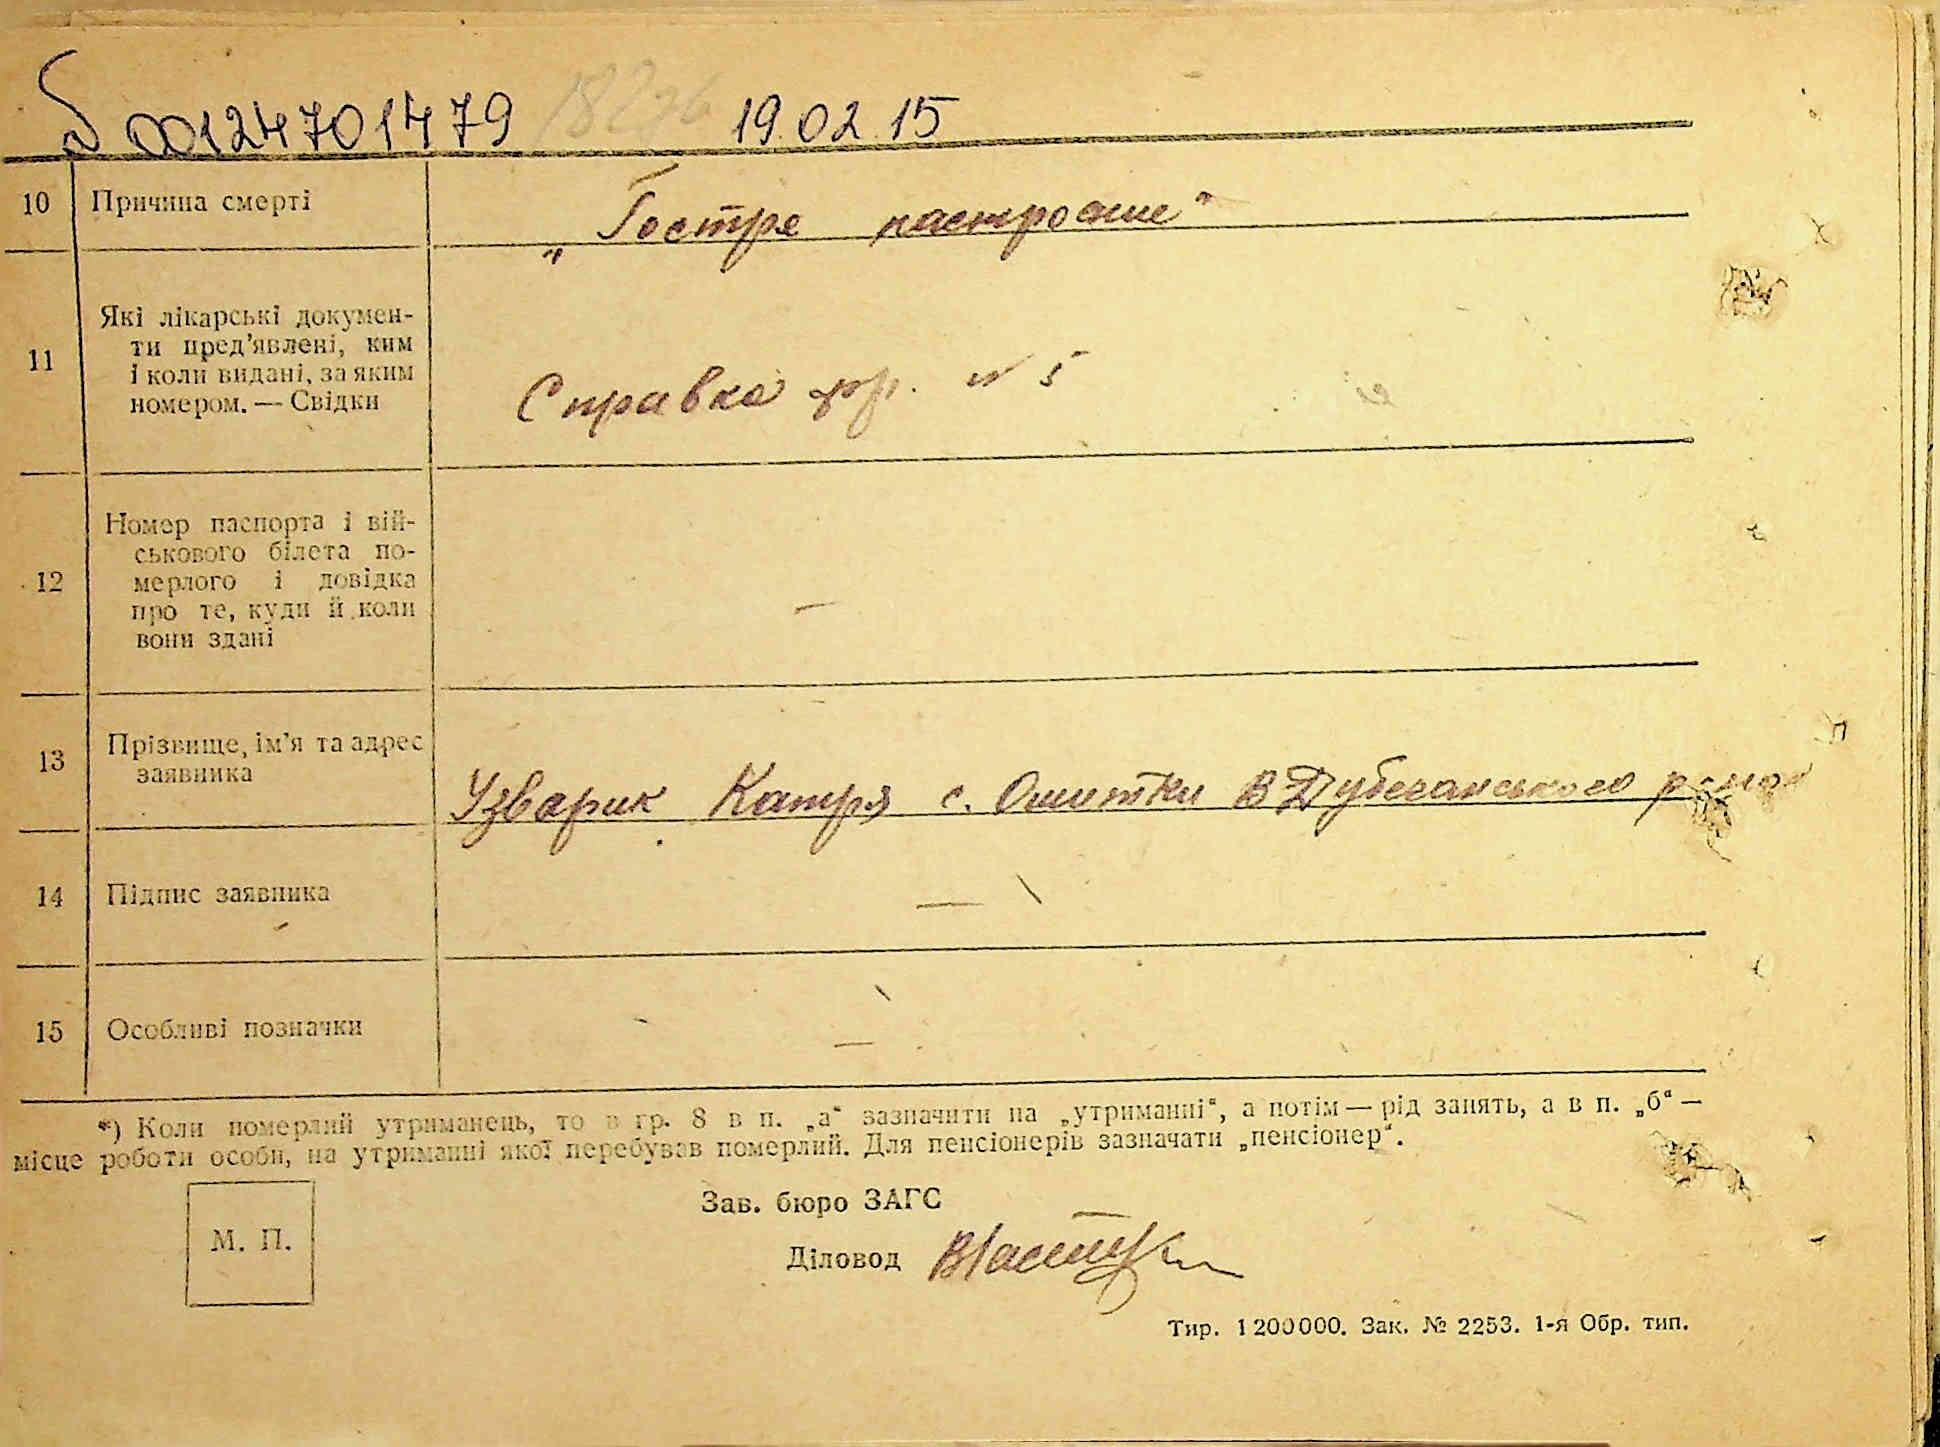 00124701479 19.02.15
10 Причина смерті „Гостре
11 Які лікарські докумен-
ти пред'явлені, ким
і коли видані, за яким
номером. — Свідки
Справка № 5
12 Номер паспорта і вій-
ськового білета по-
мерлого і довідка
про те, куди й коли
вони здані
—
13 Прізвище, ім'я та адрес
заявника
Узварик Катря с. Ошитки В Дубечанського р-на
14 Підпис заявника —
15 Особливі позначки —
*) Коли померлий утриманець, то в гр. 8 в п. „а“ зазначити на „утриманні“, а потім — рід занять, а в п. „б“ —
місце роботи особи, на утриманні якої перебував померлий. Для пенсіонерів зазначати „пенсіонер“.
М. П.
Зав. бюро ЗАГС
Діловод
Тир. 1200000. Зак. № 2253. 1-я Обр. тип.